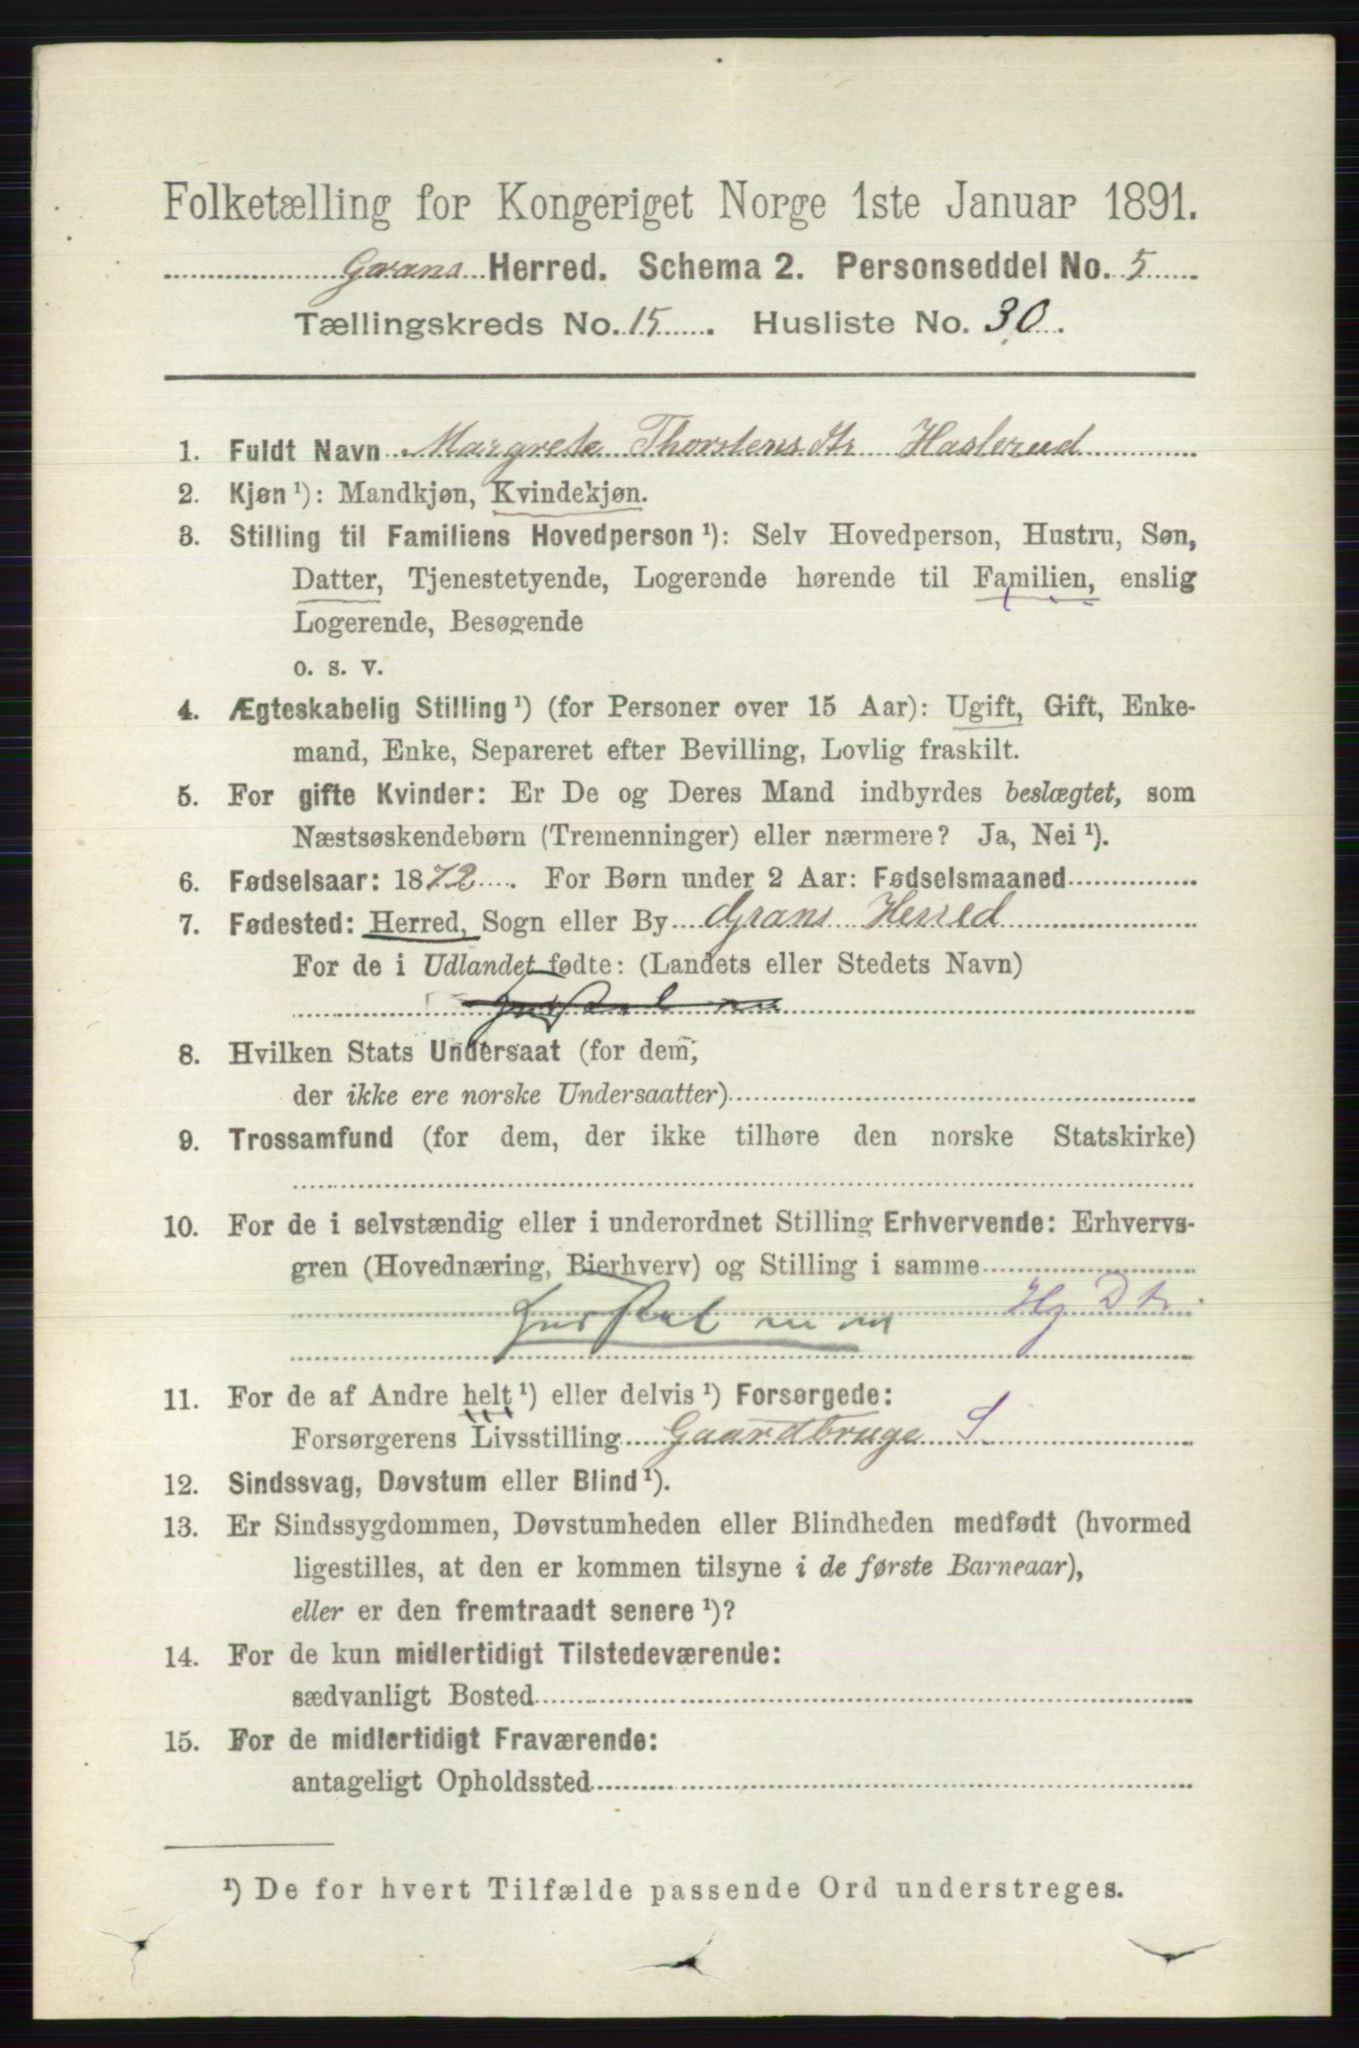 Folketælling for Kongeriget Norge 1ste Januar 1891.
Grans Herred. Schema 2. Personseddel No. 5
Tællingskreds No. 15. Husliste No. 30.
1. Fuldt Navn Margrete Thorstensdtr Haslerud
2. Kjøn ¹): Mandkjøn, Kvindekjøn.
3. Stilling til Familiens Hovedperson ¹): Selv Hovedperson, Hustru, Søn,
Datter, Tjenestetyende, Logerende hørende til Familien, enslig
Logerende, Besøgende
o. s. v.
4. Ægteskabelig Stilling ¹) (for Personer over 15 Aar): Ugift, Gift, Enke-
mand, Enke, Separeret efter Bevilling, Lovlig fraskilt.
5. For gifte Kvinder: Er De og Deres Mand indbyrdes beslægtet, som
Næstsøskendebørn (Tremenninger) eller nærmere? Ja, Nei ¹).
6. Fødselsaar: 1872. For Børn under 2 Aar: Fødselsmaaned
7. Fødested: Herred, Sogn eller By Grans Herred
For de i Udlandet fødte: (Landets eller Stedets Navn)
8. Hvilken Stats Undersaat (for dem,
der ikke ere norske Undersaatter)
9. Trossamfund (for dem, der ikke tilhøre den norske Statskirke)
10. For de i selvstændig eller i underordnet Stilling Erhvervende: Erhvervs-
gren (Hovednæring, Bierhverv) og Stilling i samme
Hg Dtr.
11. For de af Andre helt ¹) eller delvis ¹) Forsørgede:
Forsørgerens Livsstilling Gaardbruge S
12. Sindssvag, Døvstum eller Blind ¹).
13. Er Sindssygdommen, Døvstumheden eller Blindheden medfødt (hvormed
ligestilles, at den er kommen tilsyne i de første Barneaar),
eller er den fremtraadt senere ¹)?
14. For de kun midlertidigt Tilstedeværende:
sædvanligt Bosted
15. For de midlertidigt Fraværende:
antageligt Opholdssted
¹) De for hvert Tilfælde passende Ord understreges.